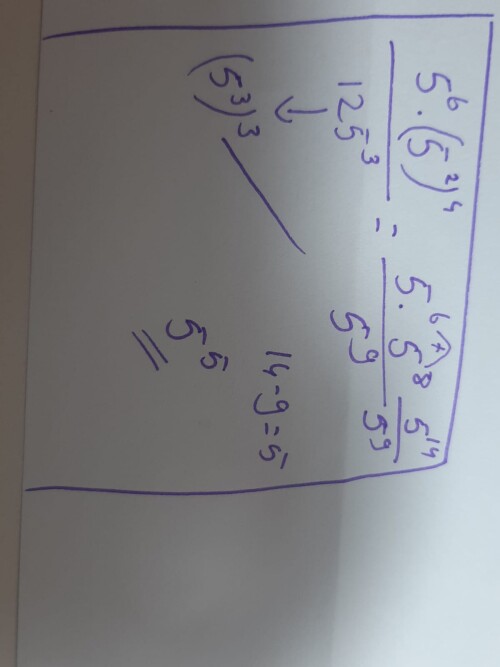 5⁶ · (5²)⁴ / 125³ = 5⁶ · 5⁸ / 5⁹ 5¹⁴ / 5⁹
+
↓
(5³)³
14 - 9 = 5
5⁵